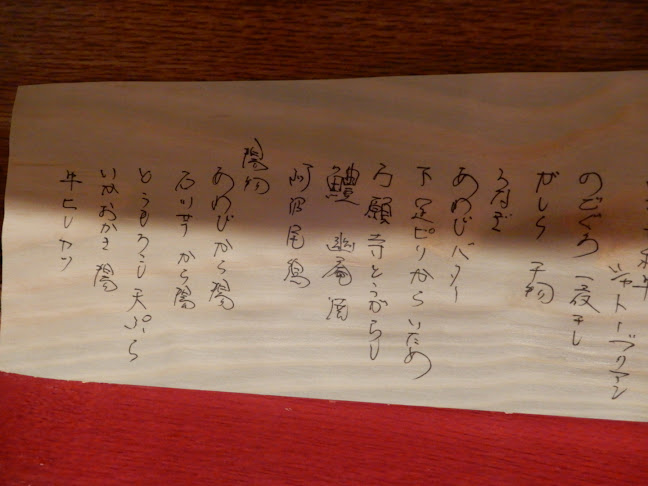 シャトーブリアン
のどぐろ 一夜干し
がしら 干物
うなぎ
あわびバター
下足ピリから いため
万願寺とうがらし
鱧 幽庵焼
阿波尾鶏
揚物
あわびから揚
石川芋 から揚
とうもろこし天ぷら
おかき揚
牛ヒレカツ